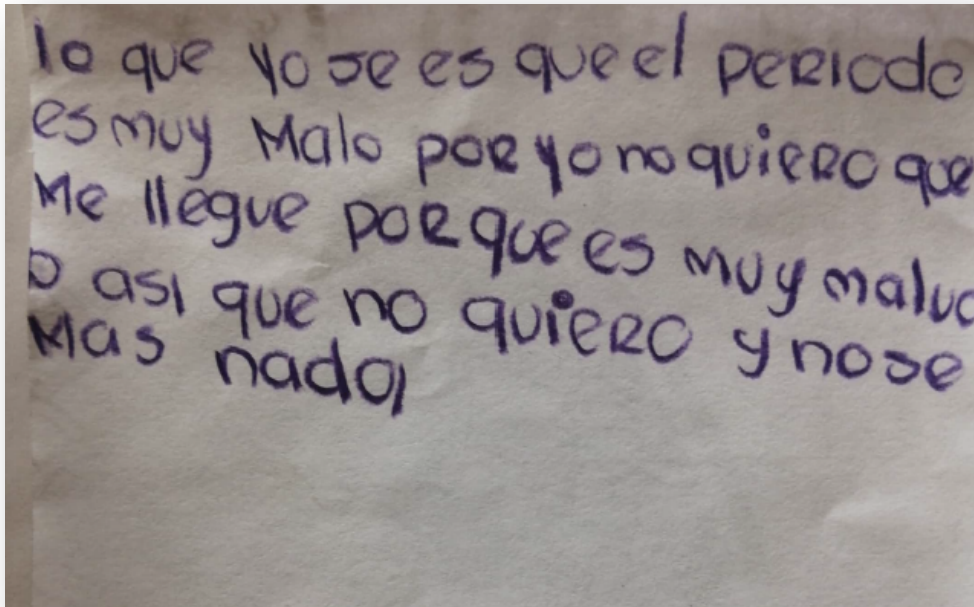 lo que yo se es que el periodo
es muy Malo por yo no quiero que
Me llegue porque es muy maluc
o asi que no quiero y no se
Mas nada